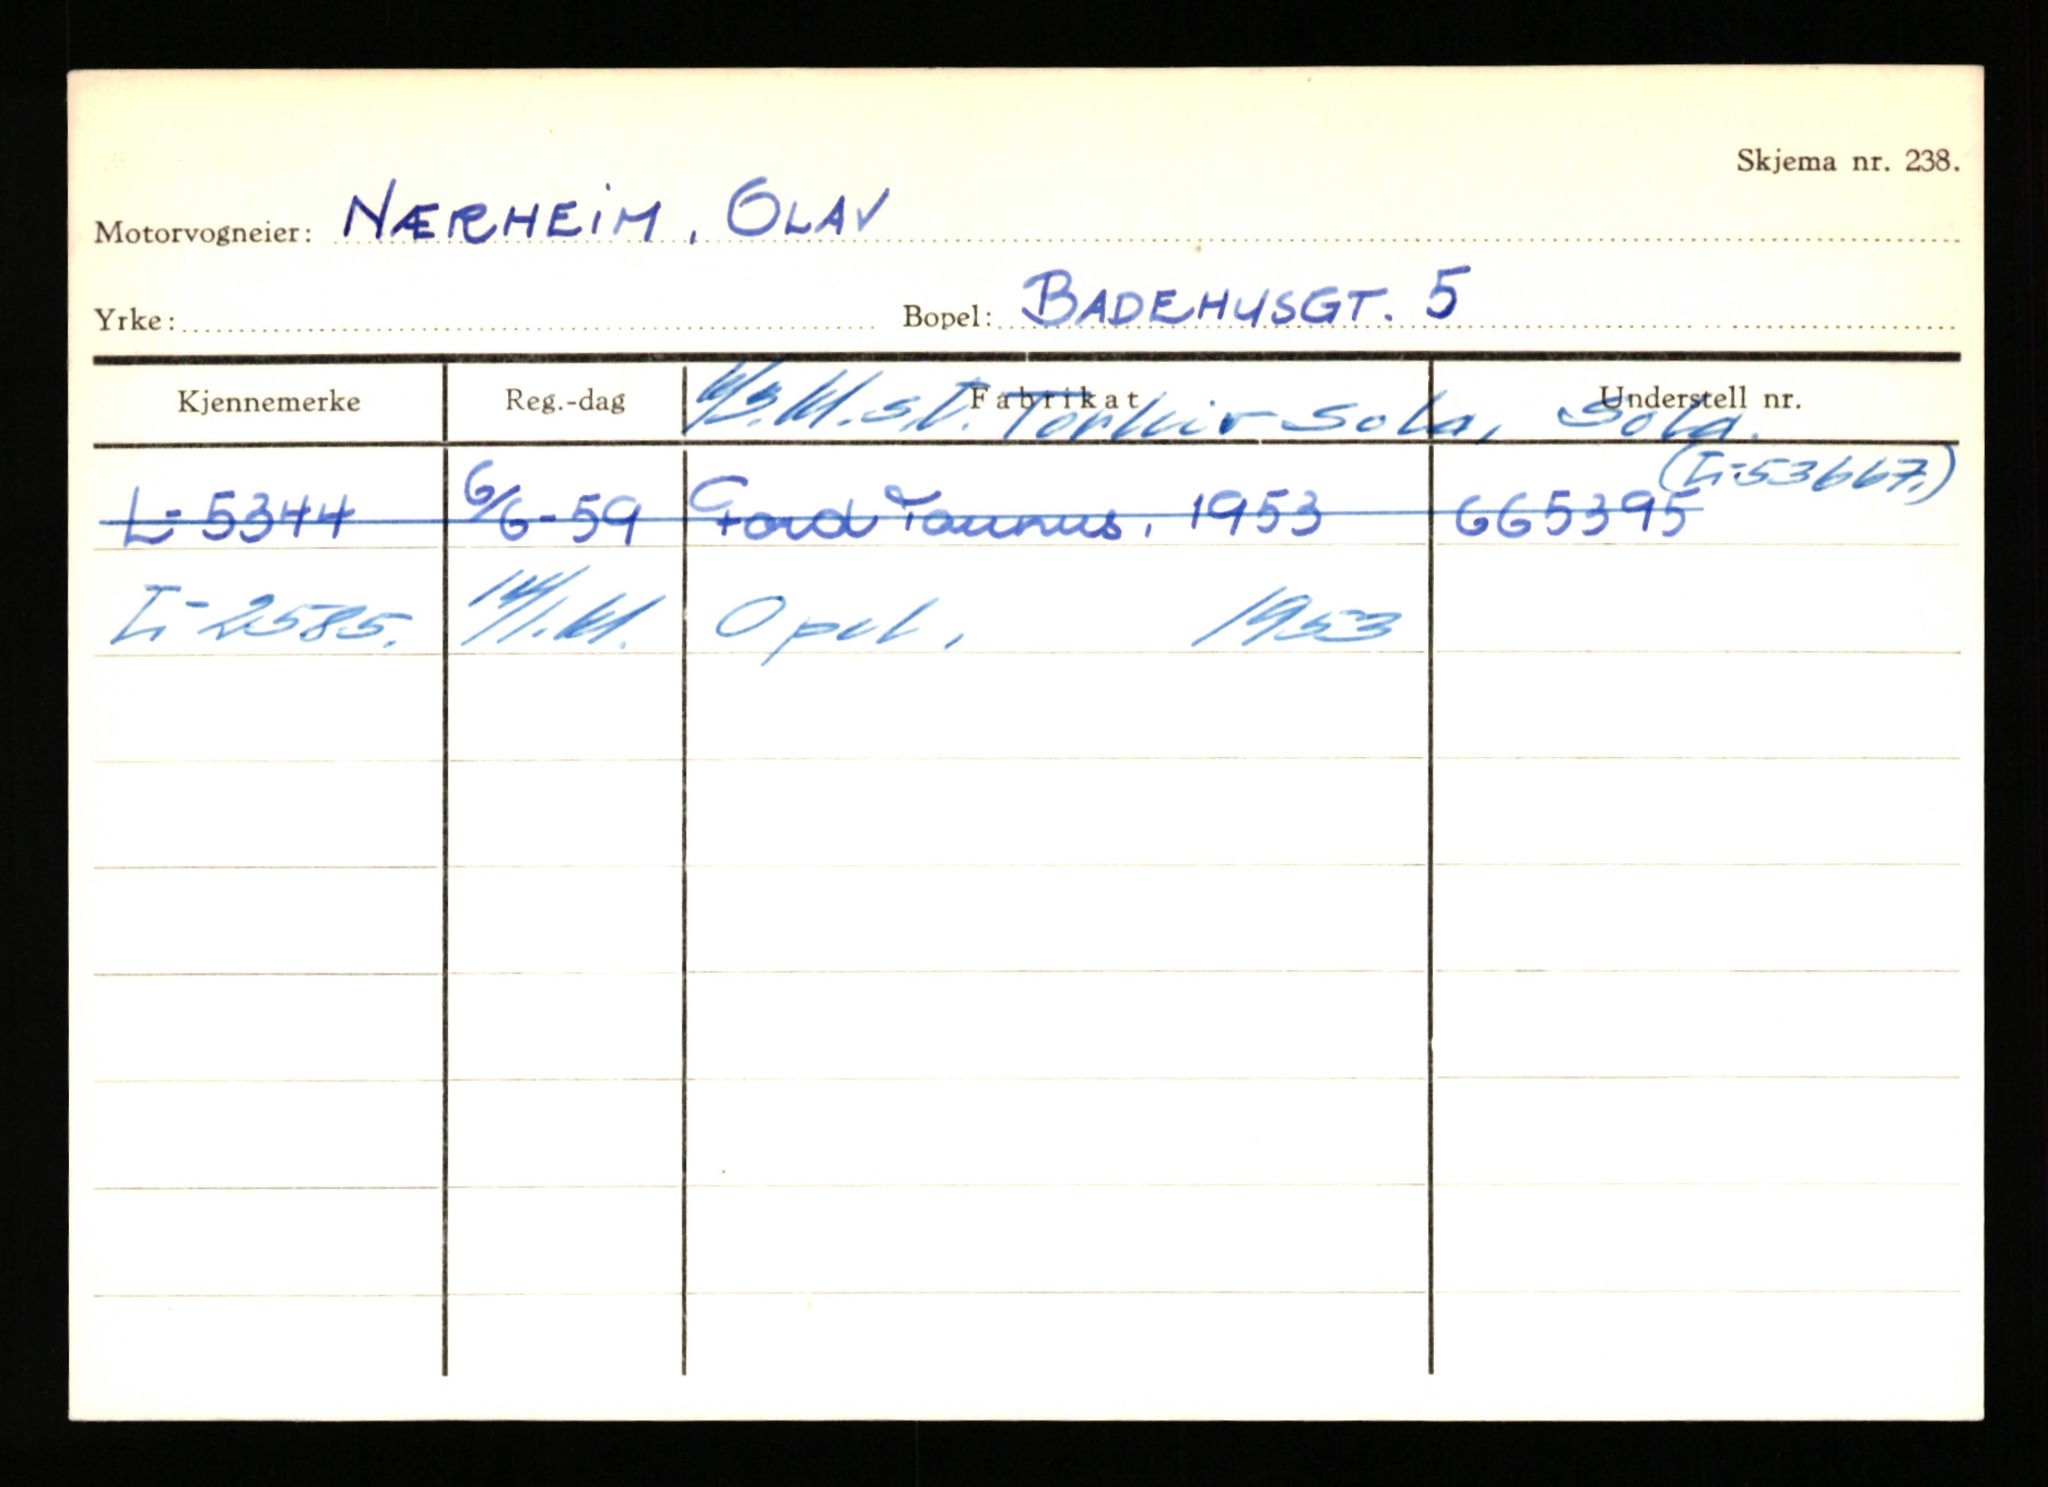 Skjema nr. 238.
Motorvogneier: NÆRHEIM, OLAV
Yrke: Bopel: BADEHUSGT. 5
Kjennemerke Reg.-dag Fabrikat Understell nr.
Sola, Sola.
(L-53667.)
L-5344 6/6-59 Ford Taunus, 1953 665395
L-2585. 14/1.61. Opel, 1953